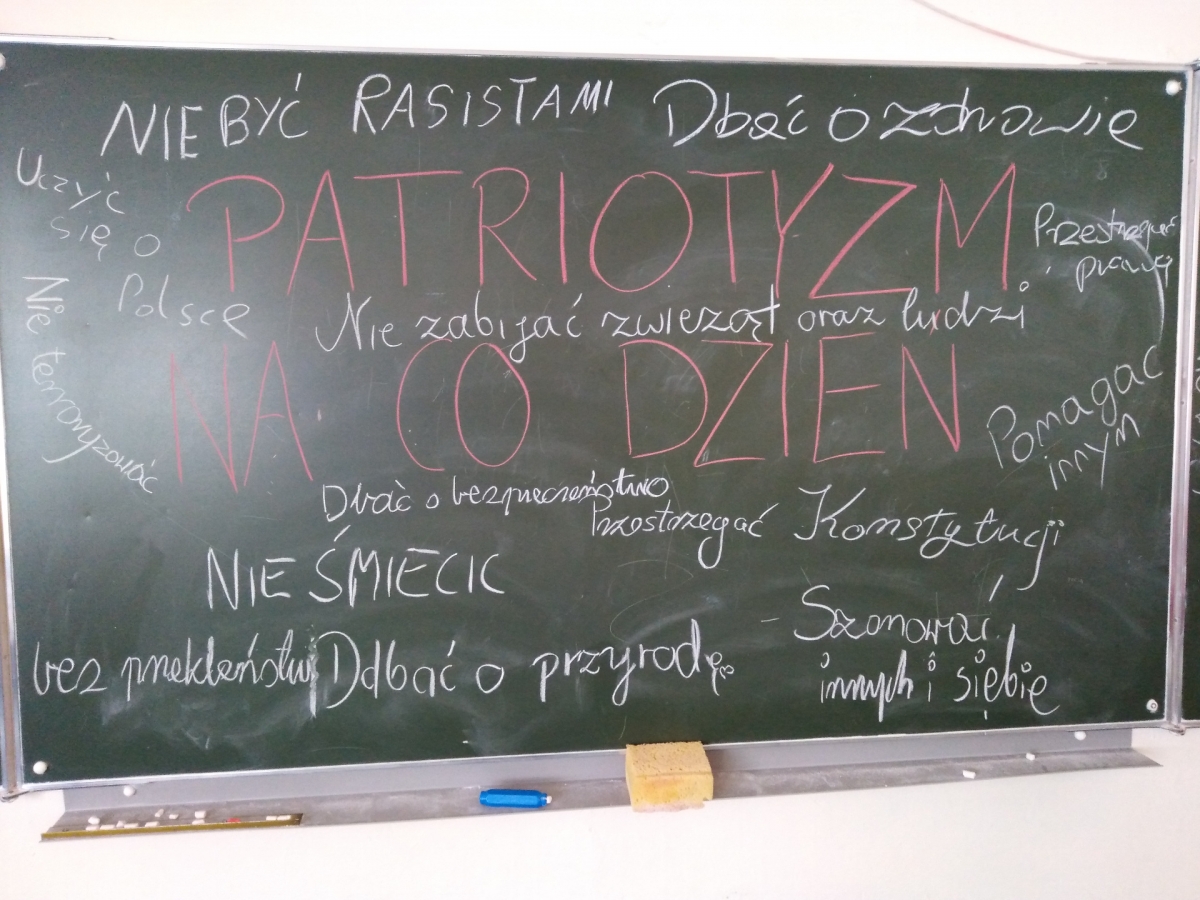 NIE BYĆ RASISTAMI
Dbać o zdrowię
Uczyć
się o
Polscę
PATRIOTYZM
Przestrzegać
prawa
Nie zabijać zwierząt oraz ludzi
Nie terroryzować
NA CO DZIEN
Pomagać
innym
Dbać o bezpieczeństwo
Przestrzegać Konstytucji
NIE ŚMIECIC
- Szanować
innych i siębię
bez przekleństw
Ddbać o przyrodę.